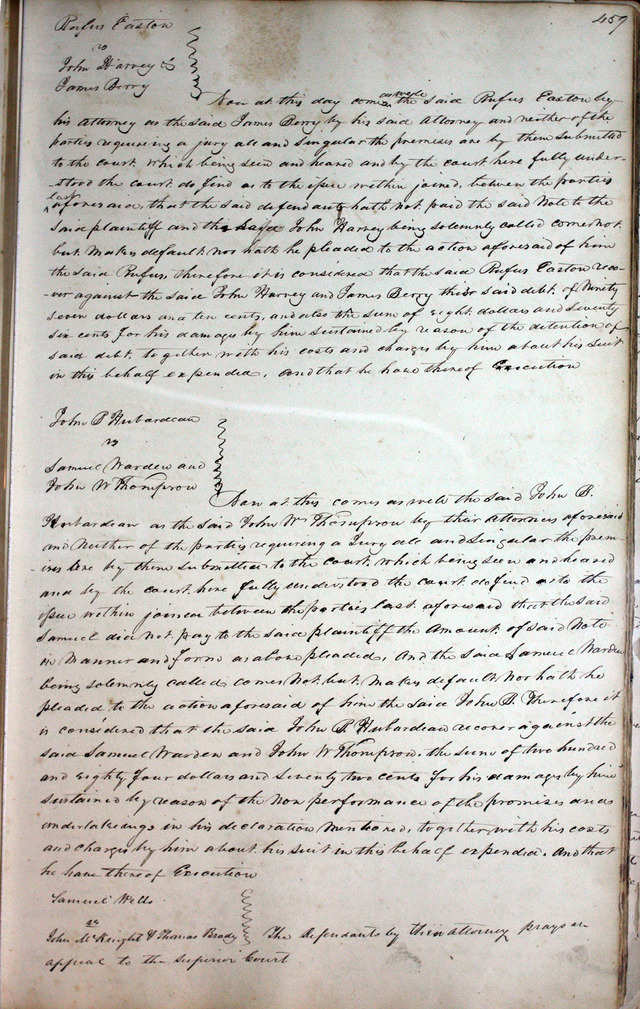 459
Rufus Easton
vs
John Harvey &
James Berry
Now at this day comes as well the said Rufus Easton by
his Attorney as the said James Berry by his said Attorney and neither of the
parties requiring a jury all and singular the premises are by them submitted
to the court which being seen and heard and by the court here fully under-
stood the court do find as to the issue within joined, between the parties
last aforesaid, that the said defendants hath not paid the said Note to the
said plaintiff and the said John Harvey being solemnly called comes not
but makes default nor hath he pleaded to the action aforesaid of him
the said Rufus, therefore it is considered that the said Rufus Easton reco-
ver against the said John Harvey and James Berry their said debt of Ninety
seven dollars and ten cents, and also the sum of eight dollars and seventy
six cents for his damages by him sustained by reason of the detention of
said debt, together with his costs and charges by him about his suit
in this behalf expended, and that he have thereof Execution
John B Hubardeau
vs
Samuel Warden and
John W Thompson
Now at this comes as well the said John B.
Hubardeau as the said John Wm Thompson by their attornies aforesaid
and Neither of the parties requiring a Jury all and singular the prem-
ises are by them submitted to the court which being seen and heard
and by the court here fully understood the court do find as to the
issue within joined between the parties last aforesaid that the said
Samuel did not pay to the said plaintiff the Amount of said Note
in Manner and form as above pleaded, and the said Samuel Warden
being solemnly called comes Not but makes default Nor hath he
pleaded to the action aforesaid of him the said John B. Therefore it
is considered that the said John B Hubardeau recover against the
said Samuel Warden and John W Thompson the sum of two hundred
and Eighty four dollars and Seventy two cents for his damages by him
sustained by reason of the Non performance of the promises and
undertakings in his declaration Mentioned, together with his costs
and charges by him about his suit in this behalf expended. And that
he have thereof Execution
Samuel Wells
vs
John McKnight & Thomas Brady The Defendants by their attorney prays an
appeal to the Superior Court